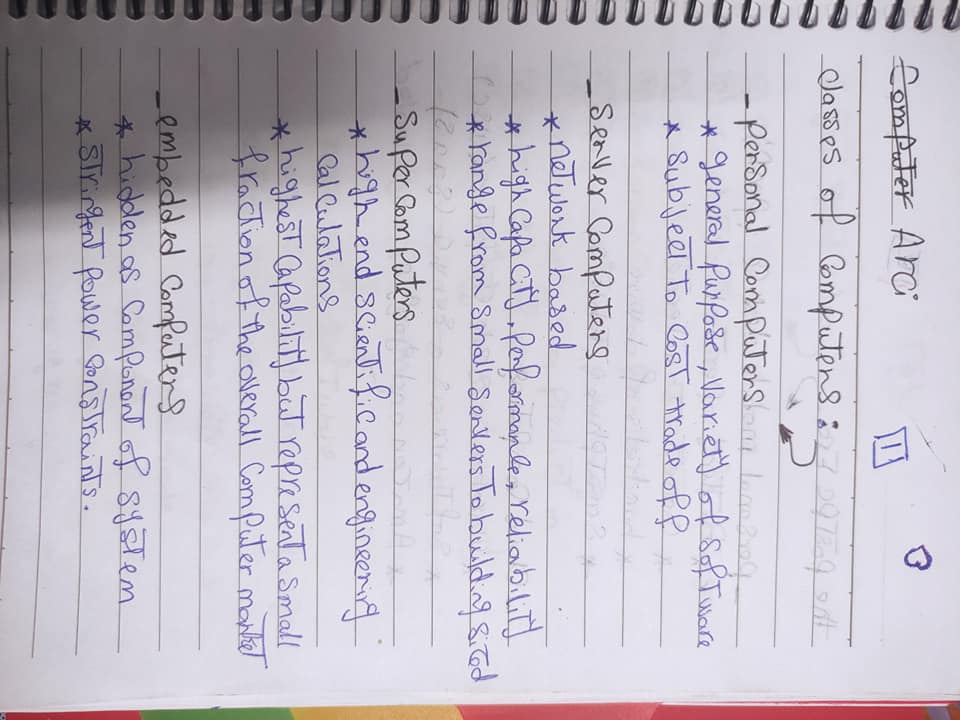 Computer Arci
1
Classes of Computers:
- Personal Computers
* general purpose, variety of software
* subject to cost trade off
- server computers
* network based
* high capacity, performance, reliability
* range from small servers to building sized
- super computers
* high end scientific and engineering
calculations
* highest capability but represent a small
fraction of the overall computer market
- embedded computers
* hidden as component of system
* stringent power constraints.